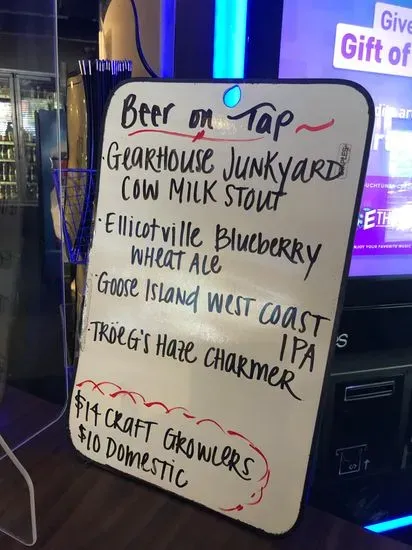 Beer on Tap
· GEARHOUSE JUNKYARD
COW MILK STOUT
· Ellicotville Blueberry
WHEAT ALE
· GOOSE ISLAND WEST COAST
IPA
· TRÖEG'S HAZE CHARMER
$14 CRAFT GROWLERS
$10 DOMESTIC
Give
Gift of